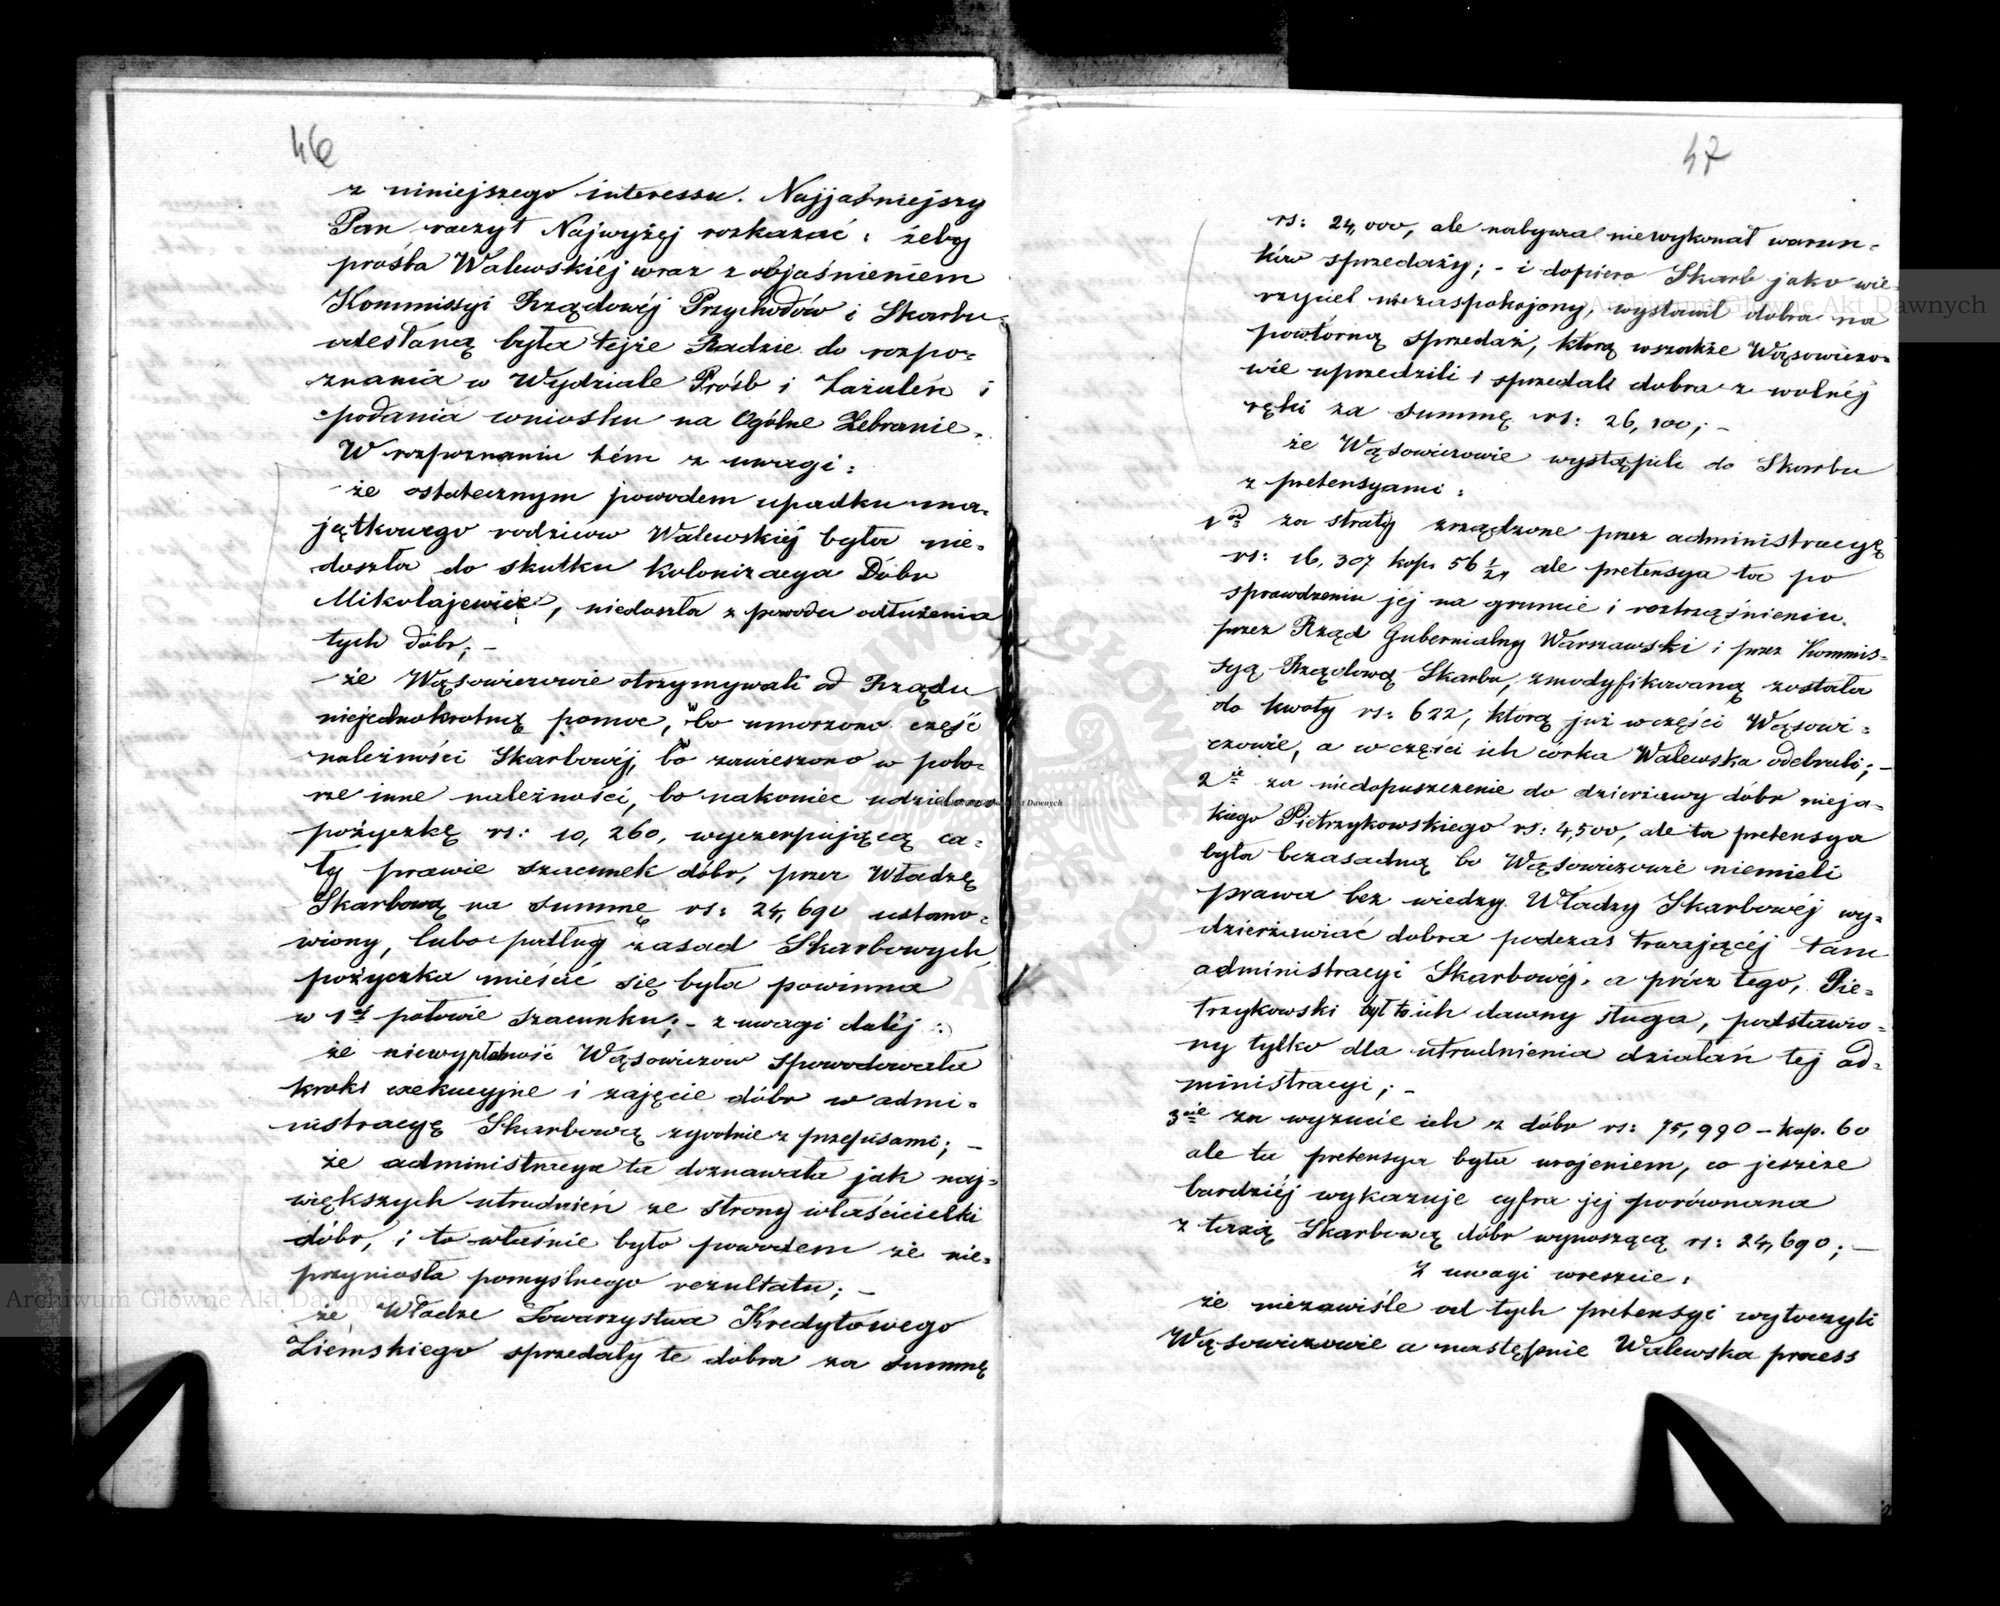 46
z niniejszego interessu. Najjaśniejszy
Pan raczył Najwyżej rozkazać: żeby
prośba Walewskiéj wraz z objaśnieniem
Kommissyi Rządowéj Przychodów i Skarbu
odesłaną była tejże Radzie do rozpo-
znania w Wydziale Próśb i Zażaleń i
podania wniosku na Ogólne Zebranie.
W rozpoznaniu tém z uwagi:
że ostatecznym powodem upadku ma-
jątkowego rodziców Walewskiéj była nie-
doszła do skutku kolonizacya Dóbr
Mikołajewice, niedoszła z powodu odłużenia
tych dóbr; –
– że Wąsowiczowie otrzymywali od Rządu
niejednokrotną pomoc, bo umorzono część
należności Skarbowéj, bo zawieszono w pobo-
rze inne należności, bo nakoniec udzielono
pożyczkę rs: 10,260, wyczerpującą ca-
ły prawie szacunek dóbr, przez Władzę
Skarbową na summę rs: 24,690 ustano-
wiony, lubo podług zasad Skarbowych
pożyczka mieścić się była powinna
w 1éj połowie szacunku; – z uwagi daléj:
że niewypłatność Wąsowiczów spowodowała
kroki exekucyjne i zajęcie dóbr w admi-
nistracyę Skarbową zgodnie z przepisami; –
że administracya ta doznawała jak naj-
większych utrudnień ze strony właścicielki
dóbr, i to właśnie było powodem że nie-
przyniosła pomyślnego rezultatu; –
że Władze Towarzystwa Kredytowego
Ziemskiego sprzedały te dobra za summę
47
rs: 24,000, ale nabywca niewykonał warun-
ków sprzedaży; – i dopiero Skarb jako wie-
rzyciel niezaspokojony, wystawił dobra na
powtórną sprzedaż, którą wszakże Wąsowiczo-
wie uprzedzili i sprzedali dobra z wolnéj
ręki za summę rs: 26,100; –
że Wąsowiczowie wystąpili do Skarbu
z pretensyami:
1od za straty zrządzone przez administracyę
rs: 16,307 kop. 56 1/2, ale pretensya ta po
sprawdzeniu jej na gruncie i roztrząśnieniu
przez Rząd Gubernialny Warszawski i przez Kommis-
syą Rządową Skarbu, zmodyfikowaną została
do kwoty rs: 622, którą już w części Wąsowi-
czowie, a w części ich córka Walewska odebrali; –
2ie za niedopuszczenie do dzierżawy dóbr nieja-
kiego Pietrzykowskiego rs: 4,500, ale ta pretensya
była bezasadną bo Wąsowiczowie niemieli
prawa bez wiedzy Władzy Skarbowéj wy-
dzierżawiać dobra podczas trwającéj tam
administracyi Skarbowéj, a prócz tego, Pie-
trzykowski był to ich dawny sługa, podstawio-
ny tylko dla utrudnienia działań tej ad-
ministracyi; –
3cie za wyzucie ich z dóbr rs: 75,990 – kop. 60
ale ta pretensya była urojeniem, co jeszcze
bardziéj wykazuje cyfra jej porównana
z taxą Skarbową dóbr wynoszącą rs: 24,690; –
Z uwagi wreszcie:
że niezawiśle od tych pretensyi wytoczyli
Wąsowiczowie a następnie Walewska process
Archiwum Główne Akt Dawnych
Archiwum Główne Akt Dawnych